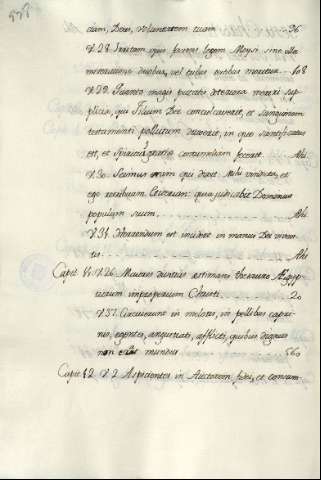 ciam, Deus, voluntatem tuam 36
V. 28. Irritam quis faciens legem Moysi sine ulla
miseratione duobus, vel tribus testibus moritur 108
V. 29. Quanto magis putatis deteriora mereri sup
plicia, qui Filium Dei conculcaverit, et sanguinem
testamenti pollutum duxerit, in quo sanctificatus
est, et Spiritui gratiæ contumeliam fecerit Ibi
V. 30. Scimus enim qui dixit Mihi vindicta, et
ego retribuam. Et iterum: quia judicabit Dominus
populum suum. Ibi
V. 31. Horrendum est incidere in manus Dei viven
tis Ibi
Capit. V. 26. Maiores divitias æstimans thesauro Ægyp
tiorum improperium Christi 20
V. 37. Circuierunt in melotis, in pellibus capri-
nis, egentes, angustiati, afflicti, quibus dignus
non erat mundus 560
Capit. 12. V. 2. Aspicientes in Auctorem fidei, et consum-